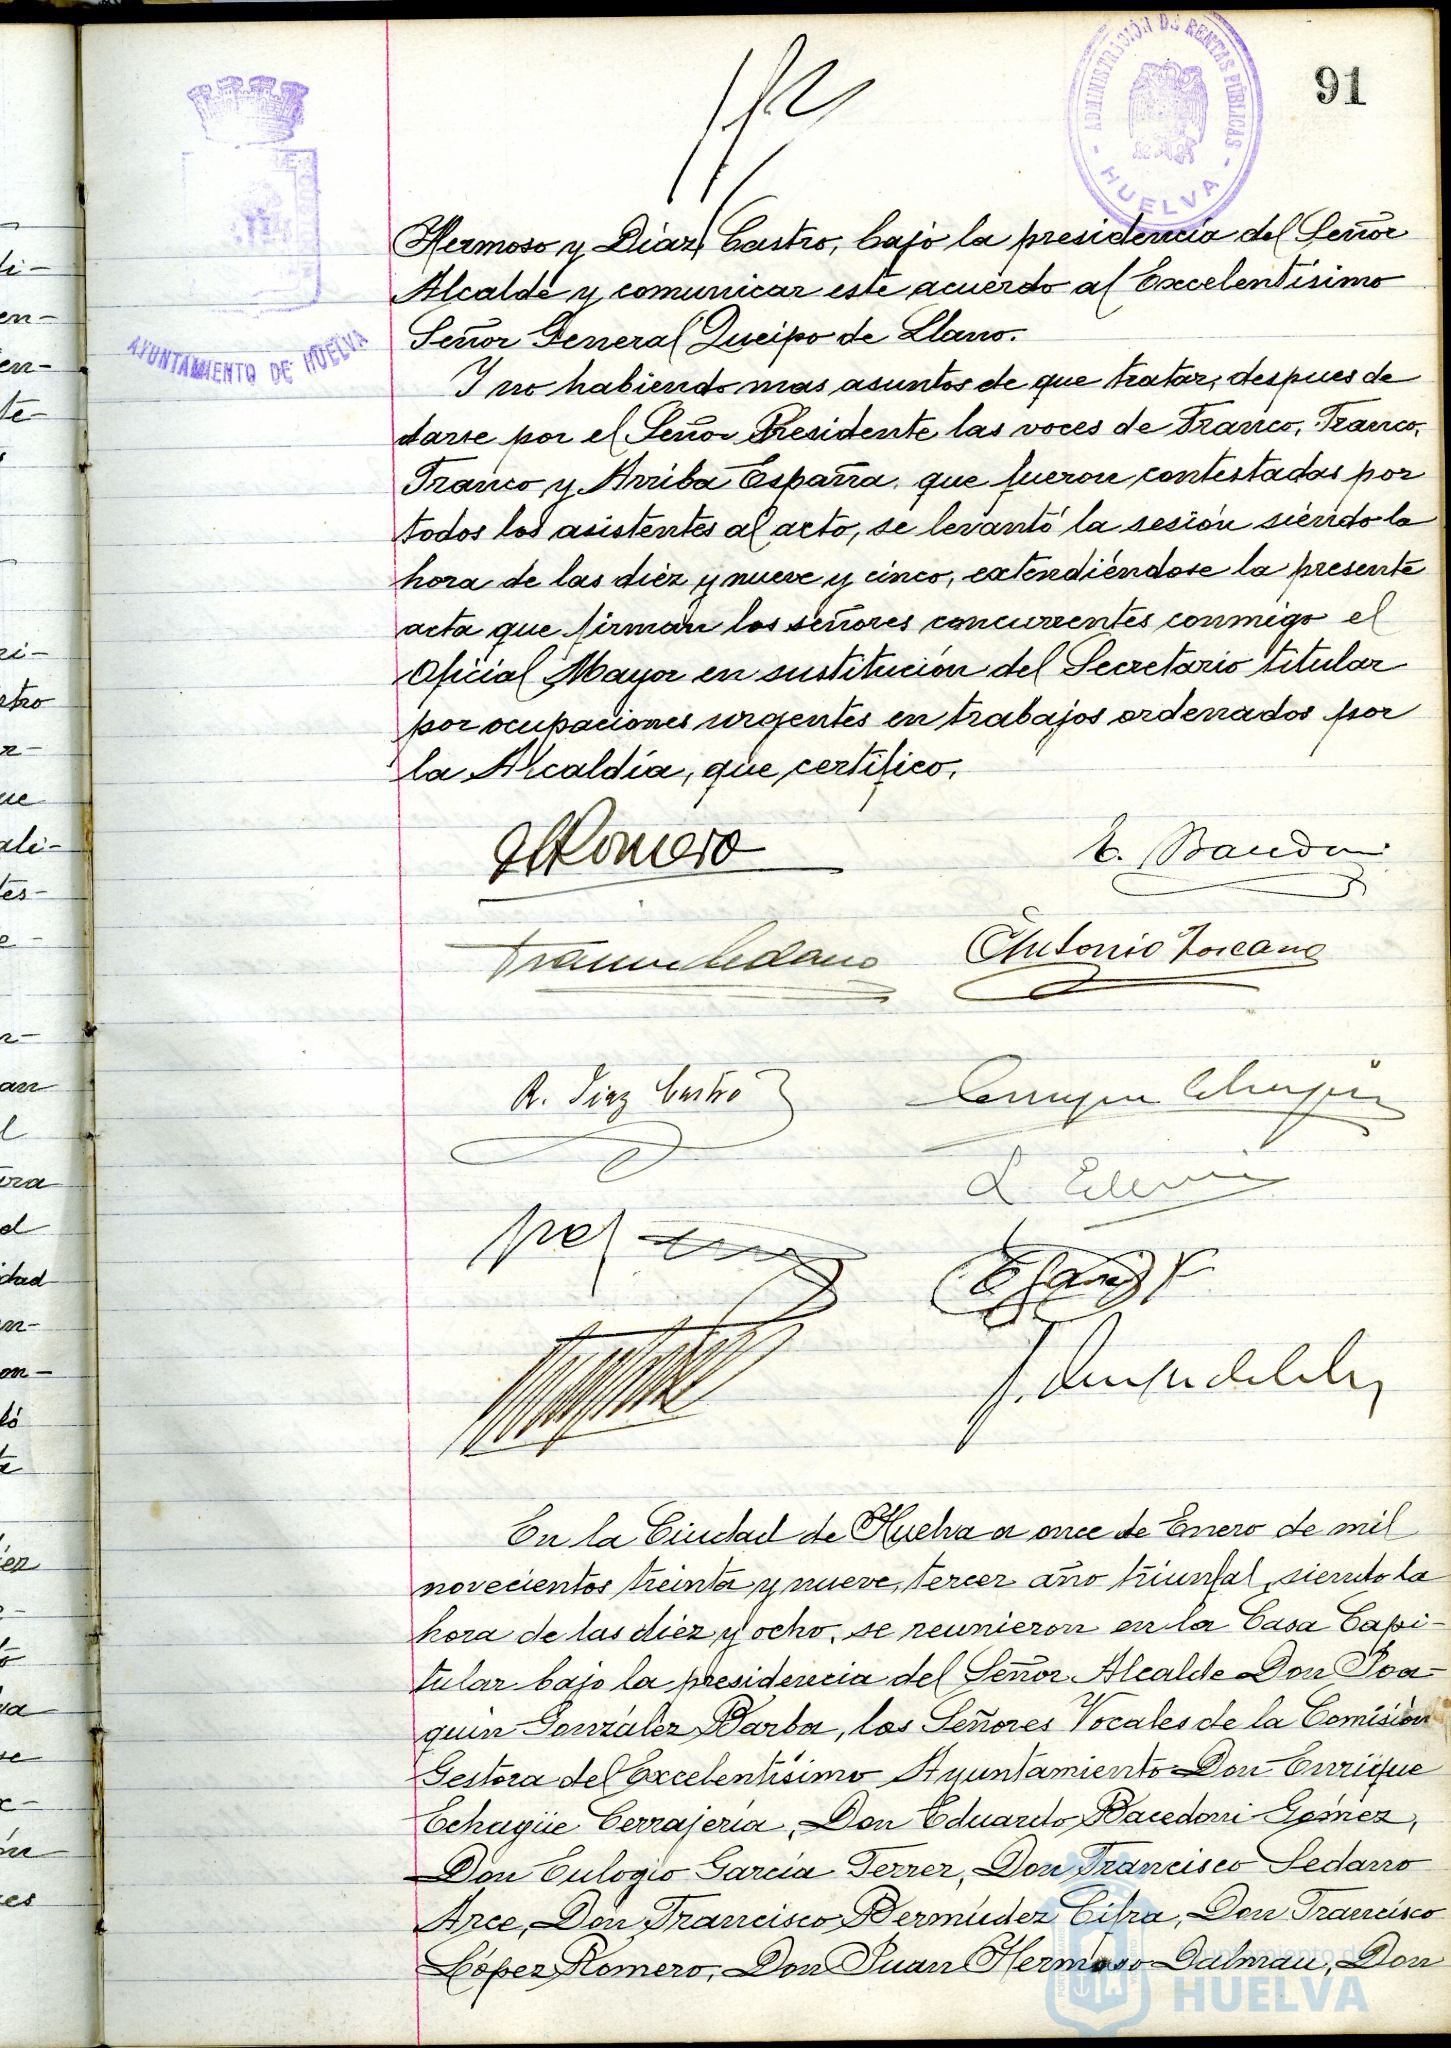 91
ADMINISTRACIÓN DE RENTAS PÚBLICAS
- HUELVA -
AYUNTAMIENTO DE HUELVA
Hermoso y Diaz Castro, bajo la presidencia del Señor
Alcalde y comunicar este acuerdo al Excelentísimo
Señor General Queipo de Llano.
Y no habiendo mas asuntos de que tratar, despues de
darse por el Señor Presidente las voces de Franco, Franco,
Franco y Arriba España que fueron contestadas por
todos los asistentes al acto, se levantó la sesión siendo la
hora de las diez y nueve y cinco, extendiéndose la presente
acta que firman los señores concurrentes conmigo el
Oficial Mayor en sustitución del Secretario titular
por ocupaciones urgentes en trabajos ordenados por
la Alcaldía, que certifico.
Romero
Antonio Toscano
R. Diaz Castro
En la Ciudad de Huelva a once de Enero de mil
novecientos treinta y nueve, tercer año triunfal, siendo la
hora de las diez y ocho, se reunieron en la Casa Capi-
tular bajo la presidencia del Señor Alcalde Don Joa-
quin González Barba, los Señores Vocales de la Comisión
Gestora del Excelentísimo Ayuntamiento Don Enrique
Echagüe Cerrajería, Don Eduardo Bacedoni Gómez,
Don Eulogio García Ferrer, Don Francisco Sedano
Arce, Don Francisco Bermúdez Cifra, Don Francisco
López Romero, Don Juan Hermoso Dalmau, Don
Ayuntamiento de
HUELVA